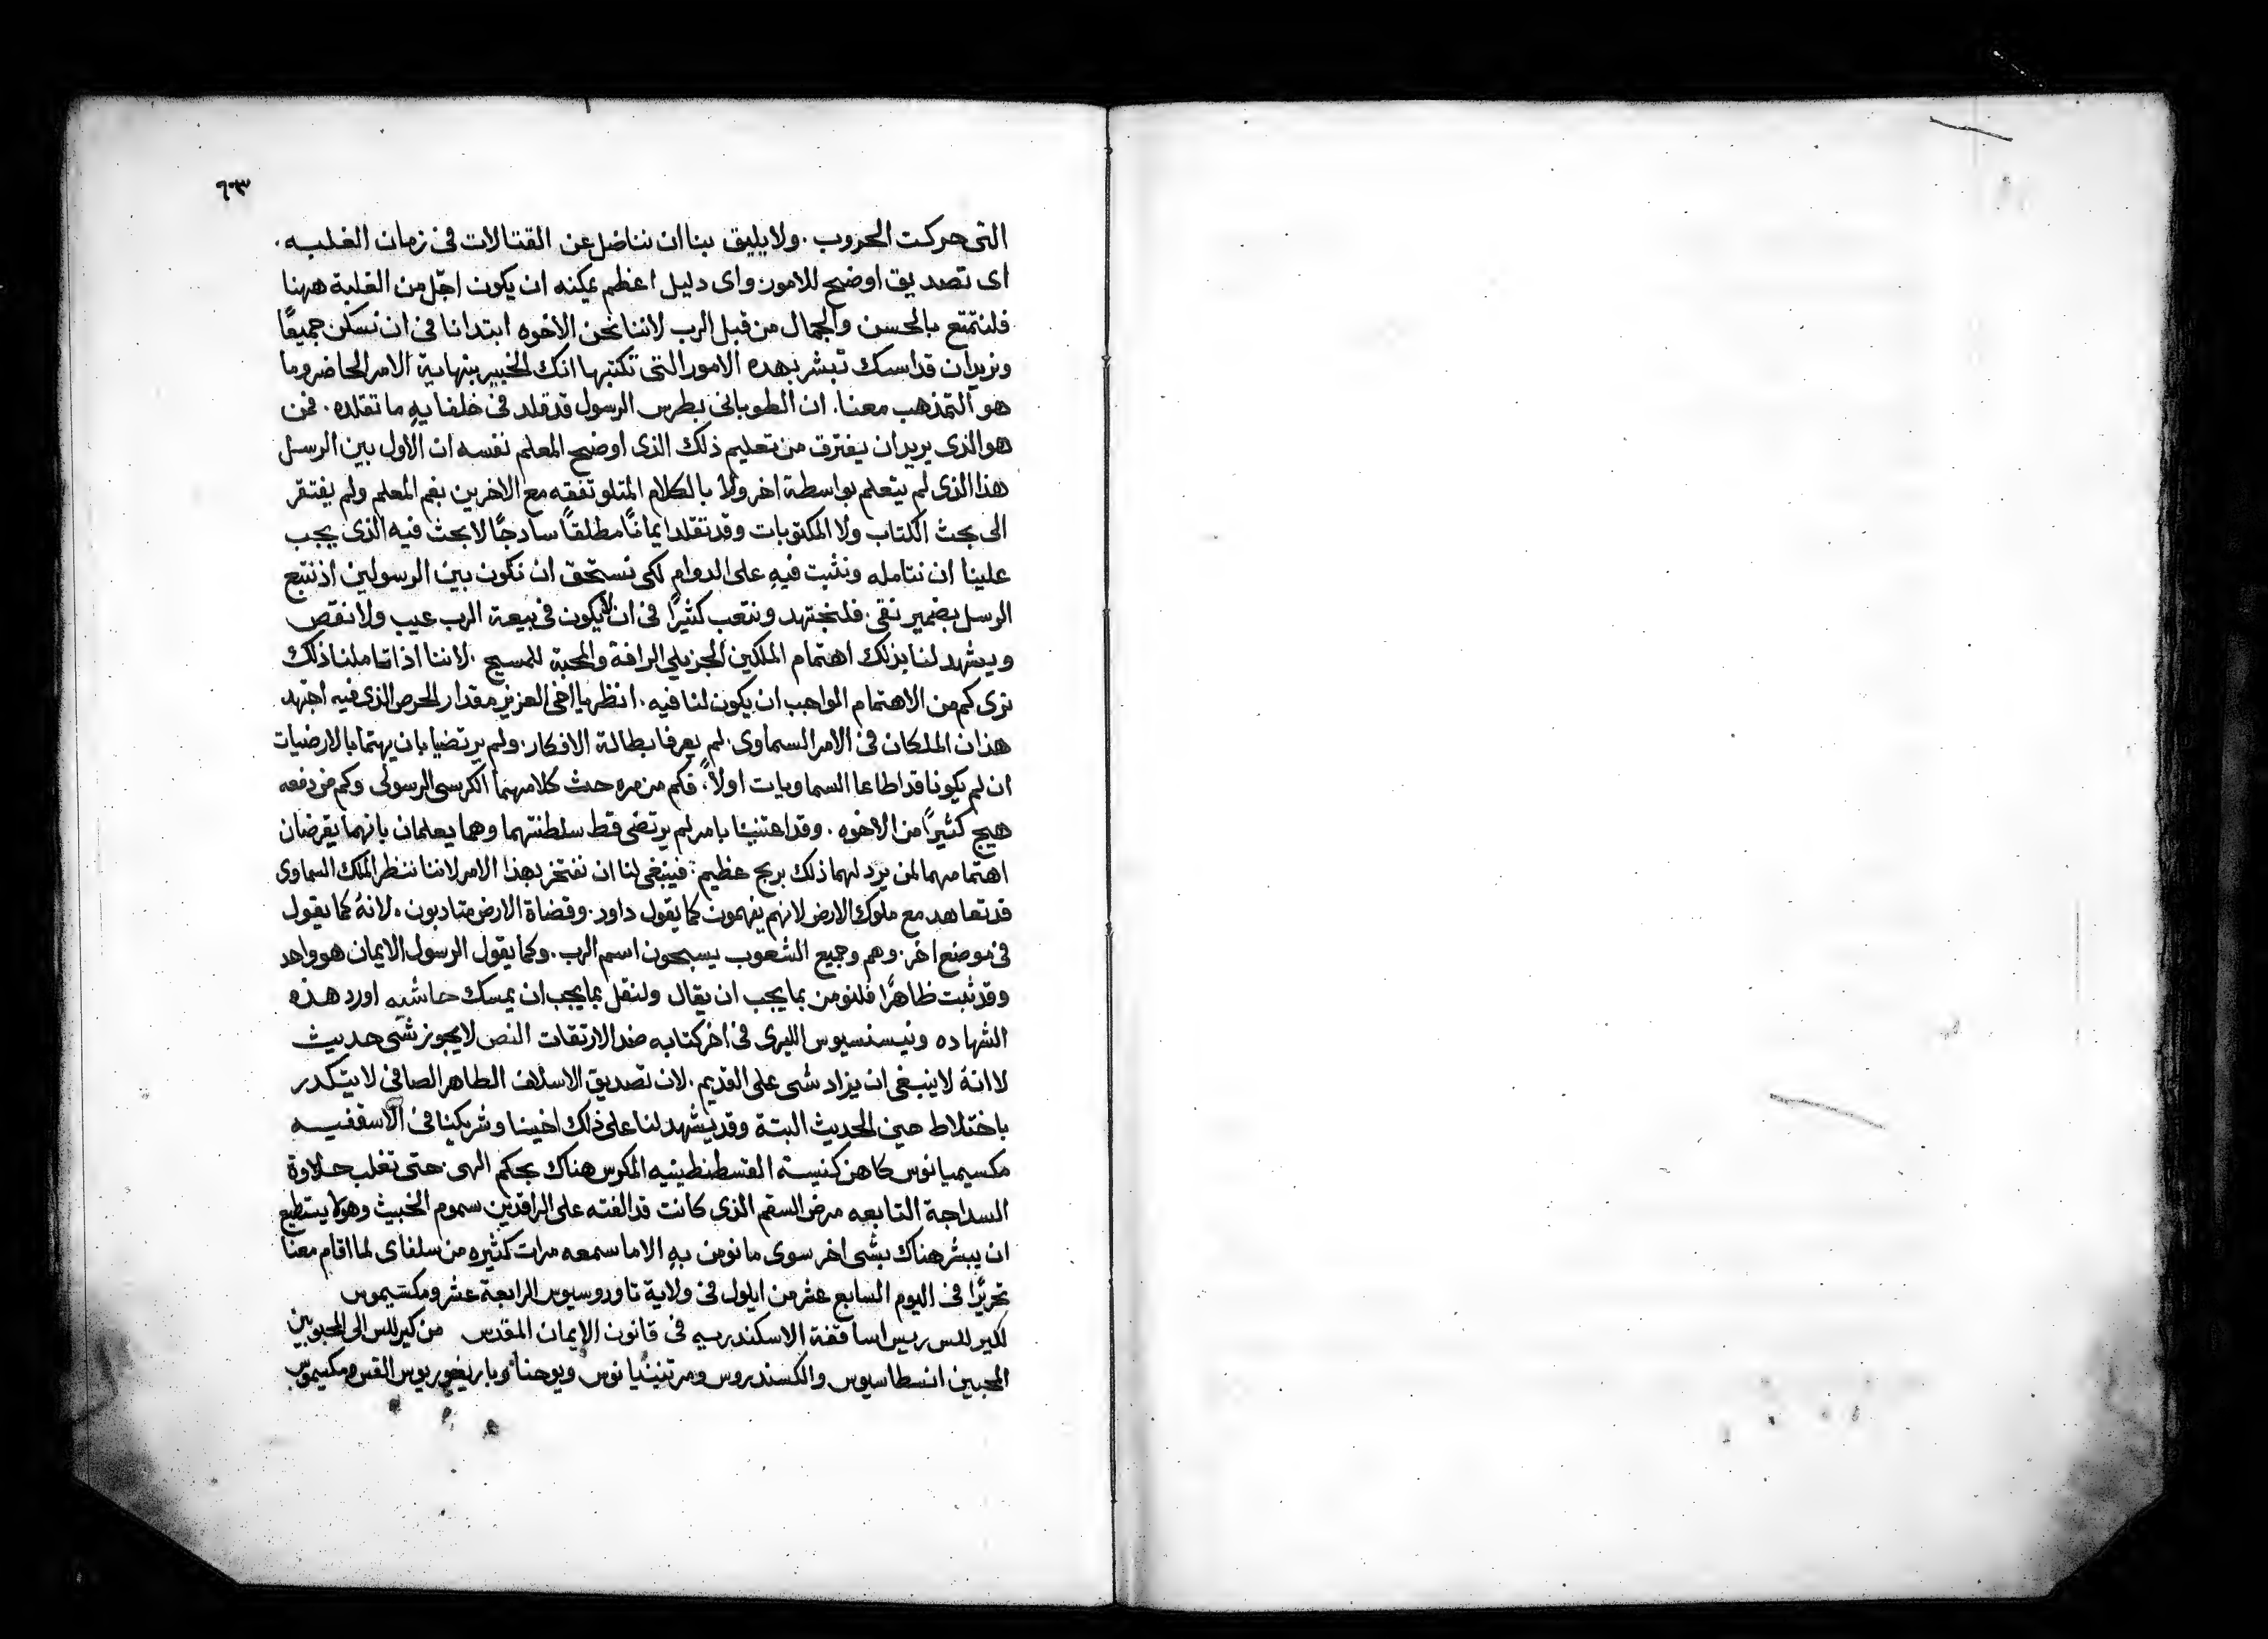 ٦٠٣
التى حركت الحروب. ولا يليق بنا ان نناضل عن القتالات فى زمان الغلبه.
اى تصديق اوضح للامور واى دليل اعظم يمكنه ان يكون اجّل من الغلبة ههنا
فلنتمتع بالحسن والجمال من قبل الرب لاننا نحن الاخوه ابتدانا فى ان نسكن جميعًا
ونريد ان قداستك تبشر بهده الامور التى تكتبها انك لخبير بنهاية الامر الحاضر وما
هو التمذهب معنا. ان الطوبانى بطرس الرسول قد قلد فى خلفايهِ ما تقلده. فمن
هو الذى يريد ان يفترق من تعليم ذلك الذى اوضح المعلم نفسه ان الاول بين الرسل
هذا الذى لم يتعلم بواسطة اخر ولا بالكلام المتلو تفقه مع الاخرين بفم المعلم ولم يفتقر
الى بحث الكتاب ولا المكتوبات وقد تقلد ايمانًا مطلقًا سادجًا لا بحث فيه الذى يجب
علينا ان نتامله ونثبت فيهِ على الدوام لكى نستحق ان نكون بين الرسولين اذ نتبع
الرسل بضمير نقى. فلنجتهد ونتعب كثيرًا فى ان لا يكون فى بيعة الرب عيب ولا نقص
ويشهد لنا بذلك اهتمام الملكين الجزيلي الرافة والمحبة للمسيح. لاننا اذا تاملنا ذلك
نرى كم من الاهتمام الواجب ان يكون لنا فيه. انظر يا اخى العزيز مقدار الحرص الذى فيه اجتهد
هذان الملكان فى الامر السماوى. لم يعرفا بطالة الافكار. ولم يرتضيا بان يهتما بالارضيات
ان لم يكونا قد اطاعا السماويات اولاً. فكم من مره حدث كلامهما الكرسى الرسولى وكم من دفعه
هيج كثيرًا من الاخوه. وقد اعتنينا بامر لم يرتضى قط سلطنتهما وهما يعلمان بانهما يقرضان
اهتمامهما لمن يرد لهما ذلك بربح عظيم. فينبغى لنا ان نفتخر بهذا الامر لاننا ننظر الملك السماوى
قد تعاهد مع ملوك الارض لانهم يفهمون كما يقول داود. وقضاة الارض متادبون. لانهُ كما يقول
فى موضع اخر. وهم وجميع الشعوب يسبحون اسم الرب. وكما يقول الرسول الايمان هو واحد
وقد ثبت ظاهرًا فلنومن بما يجب ان يقال ولنقل بما يجب ان يمسك حاشيه اورد هذه
الشهاده ونيسنسيوس الليرى فى اخر كتابه ضد الارتقات النص لا يجوز شى حديث
لا انهُ لا ينبغى ان يزاد شى على القديم. لان تصديق الاسلاف الطاهر الصافى لا يتكدر
باختلاط حين الحديث البتة وقد يشهد لنا على ذلك اخينا وشريكنا فى الاسقفيه
مكسيميانوس كاهن كنيسة القسطنطينيه المكرس هناك بحكم الهى. حتى تغلب حلاوة
السداجة التابعه مرض السقم الذى كانت قد الفته على الراقدين سموم الخبيث وهو لا يستطيع
ان يبشر هناك بشى اخر سوى ما نومن بهِ الا ما سمعه مرات كثيره من سلفاى لما اقام معنا
تحريرًا فى اليوم السابع عشر من ايلول فى ولاية تاودوسيوس الرابعة عشر ومكسيموس
لكيرللس ريس اساقفة الاسكندريه فى قانون الايمان المقدس من كيرللس الى المحبوبين
المحبين انسطاسيوس والكسندروس ومرتينيانوس ويوحنا وباريغوريوس القس ومكسيموس